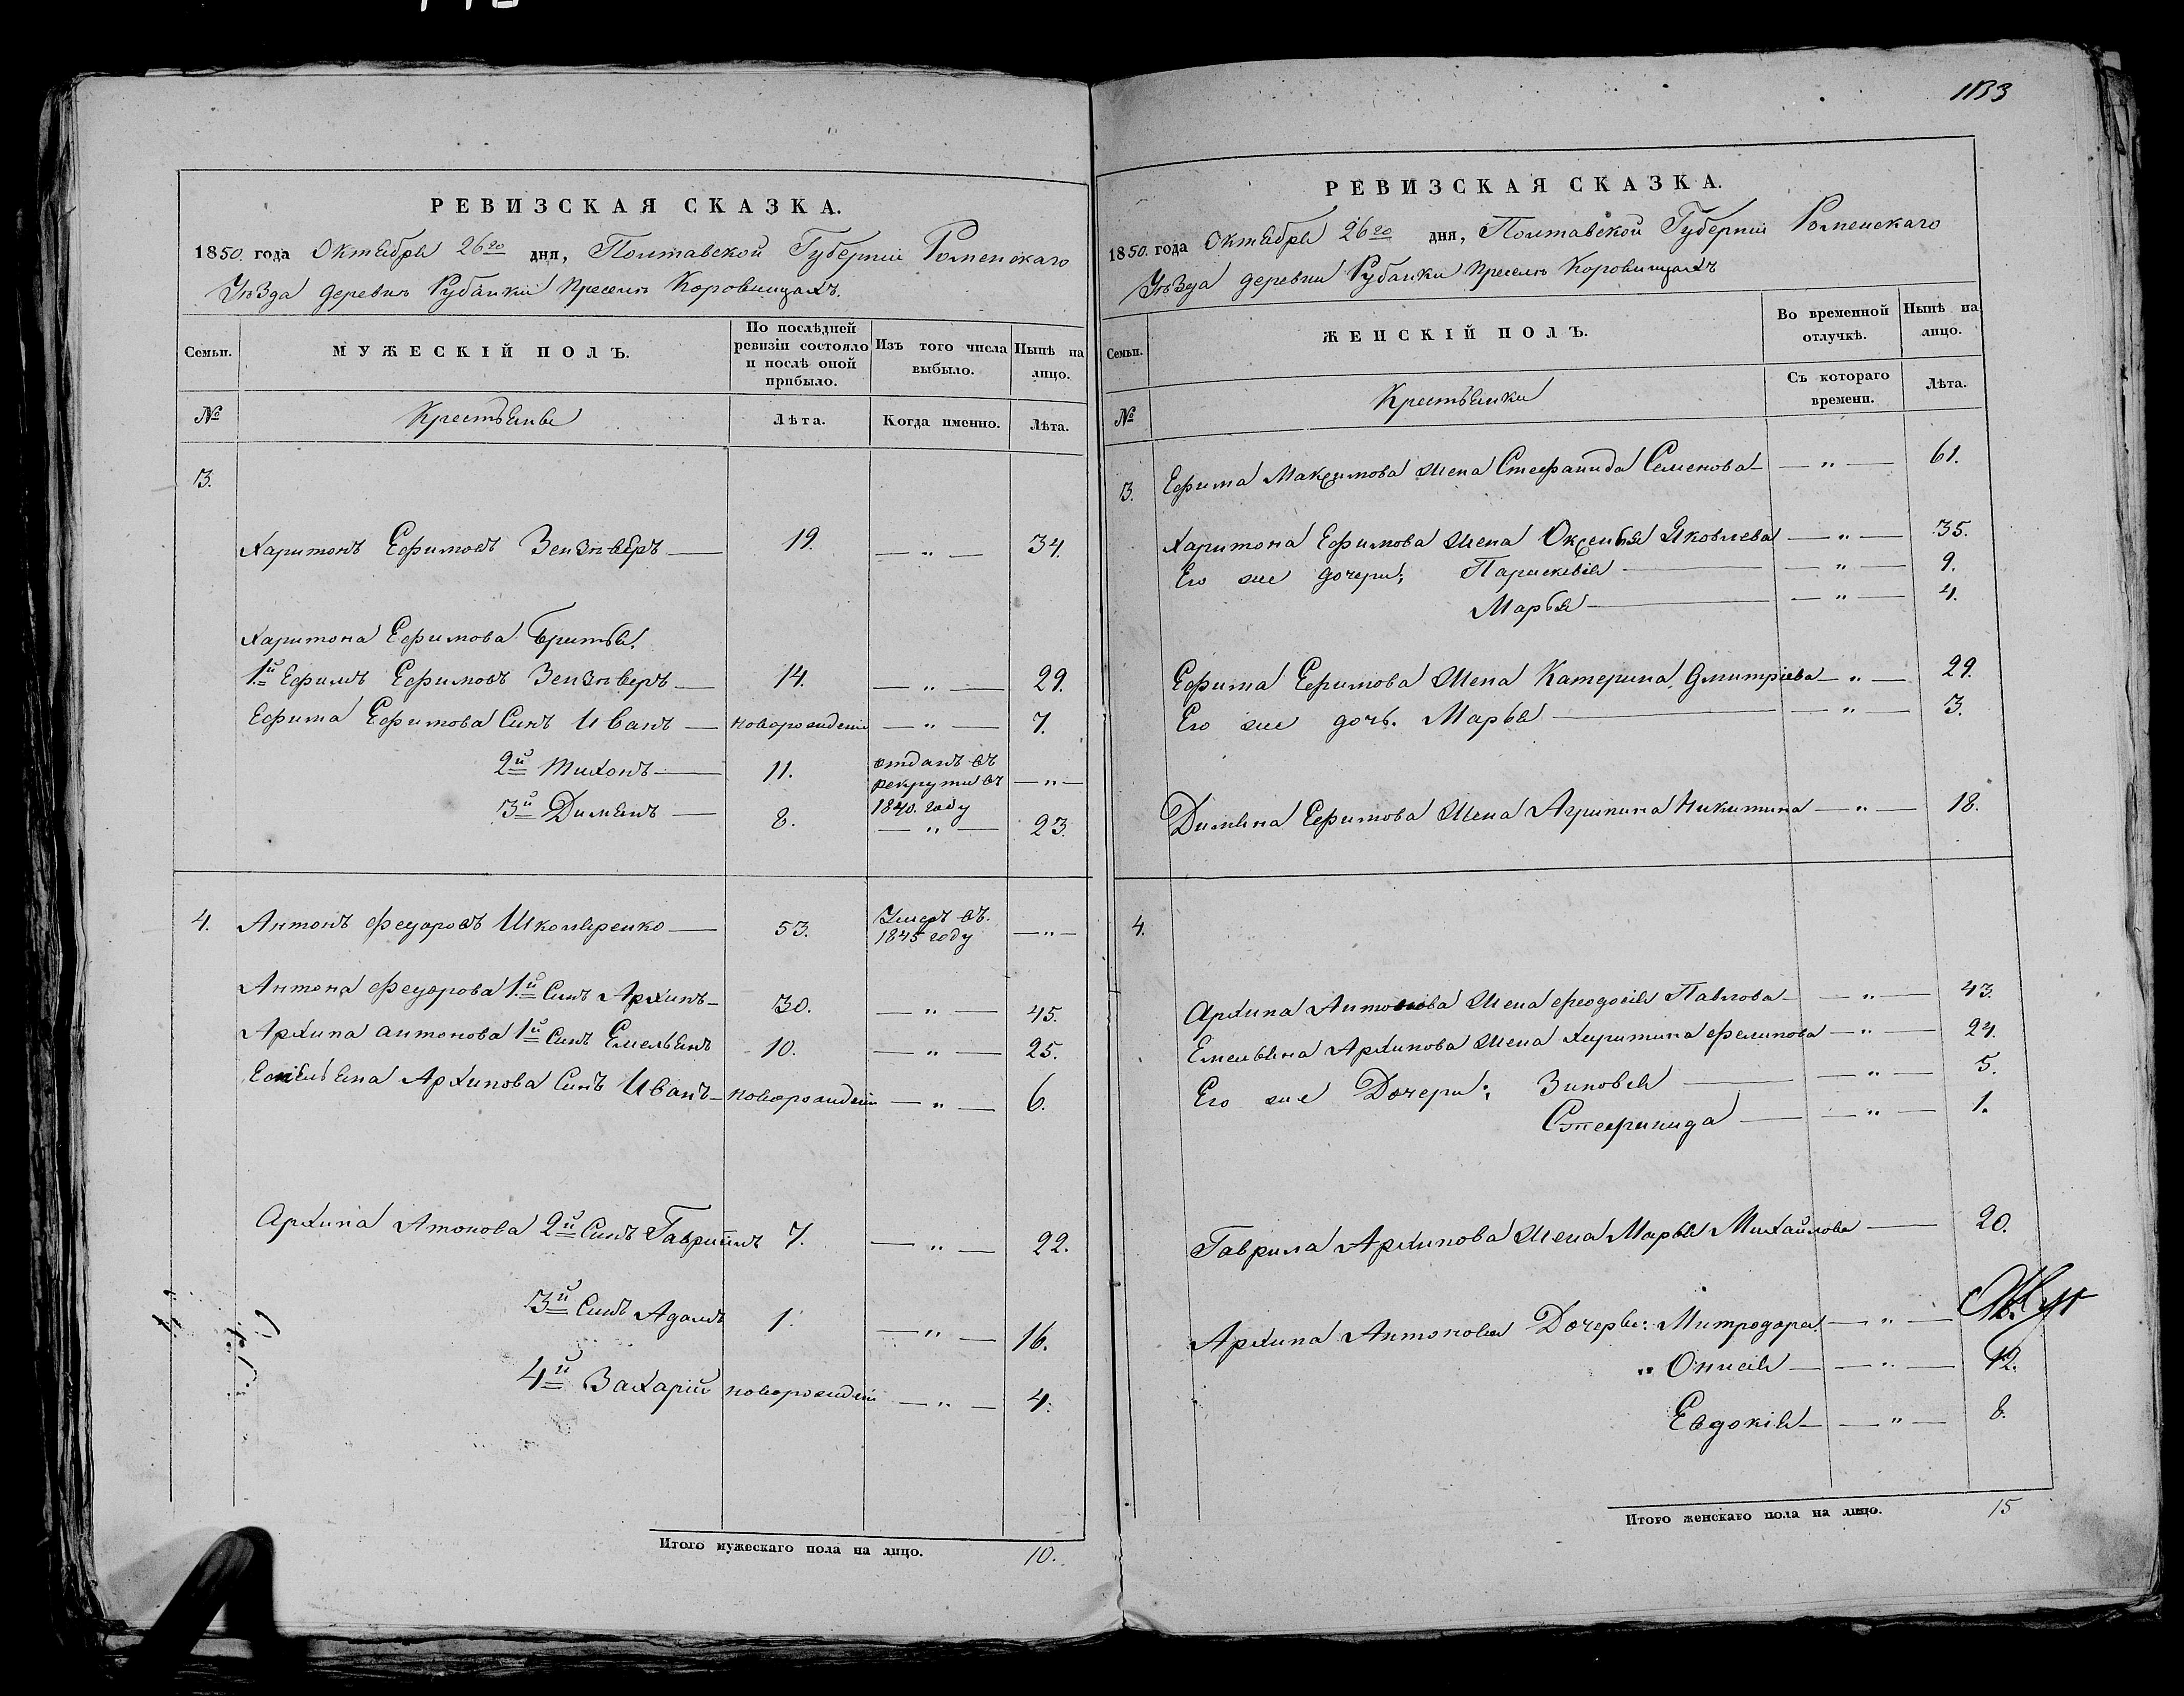 1133
РЕВИЗСКАЯ СКАЗКА.
1850 года Октября 26го дня, Полтавской Губерніи Роменскаго
Уѣзда деревнѣ Рубанки при селѣ Коровинцахъ.
Семьи.
МУЖЕСКІЙ ПОЛЪ.
По послѣдней ревизіи состояло и послѣ оной прибыло.
Изъ того числа выбыло.
Нынѣ на лицо.
№
Крестьяне
Лѣта.
Когда именно.
Лѣта.
3.
Харитонъ Ефимовъ Зензѣверъ — 19. — „ — 34.
Харитона Ефимова братья.
1й Ефимъ Ефимовъ Зензѣверъ — 14. — „ — 29.
Ефима Ефимова Синъ Иванъ — новорожденъ — „ — 7.
2й Тихонъ — 11. отданъ въ рекруты въ 1840. году — „ —
3й Димянъ — 8. — „ — 23.
4. Антонъ Федоровъ Школяренко — 53. Умеръ въ. 1845 году — „ —
Антона Федорова 1й Синъ Архипъ — 30. — „ — 45.
Архипа антонова 1й Синъ Емельянъ 10. — „ — 25.
Емельяна Архипова Синъ Иванъ — новорожденъ — „ — 6.
Архипа Атонова 2й Синъ Гавріилъ 7. — „ — 22.
3й Синъ Адамъ 1. — „ — 16.
4й Захарій новорожденъ — „ — 4.
Итого мужескаго пола на лицо. 10.
РЕВИЗСКАЯ СКАЗКА.
1850. года Октября 26го дня, Полтавской Губерніи Роменскаго
Уѣзда деревни Рубанки при селѣ Коровинцахъ
Семьи.
ЖЕНСКІЙ ПОЛЪ.
Во временной отлучкѣ.
Нынѣ на лицо.
№
Крестьянки
Съ котораго времени.
Лѣта.
3. Ефима Максимова жена Стефанида Семенова — „ — 61.
Харитона Ефимова жена Оксенья Яковлева — „ — 35.
Его же дочери; Параскевія — „ — 9.
Марья — „ — 4.
Ефима Ефимова жена Катерина Дмитріева — „ — 29.
Его же дочь. Марья — „ — 3.
Димяна Ефимова жена Агрипина Никитина — „ — 18.
4.
Архипа Антонова жена Феодосія Павлова — „ — 43.
Емельяна Архипова жена Харитина Филипова — „ — 24.
Его же Дочери; Зиновія — „ — 5.
Стефанида — „ — 1.
Гаврила Архипова жена Марья Михайлова — 20.
Архипа Антонова Дочери: Митродора — „ —
„ Онисія — „ — 12.
Евдокія — „ — 8.
Итого женскаго пола на лицо. 15